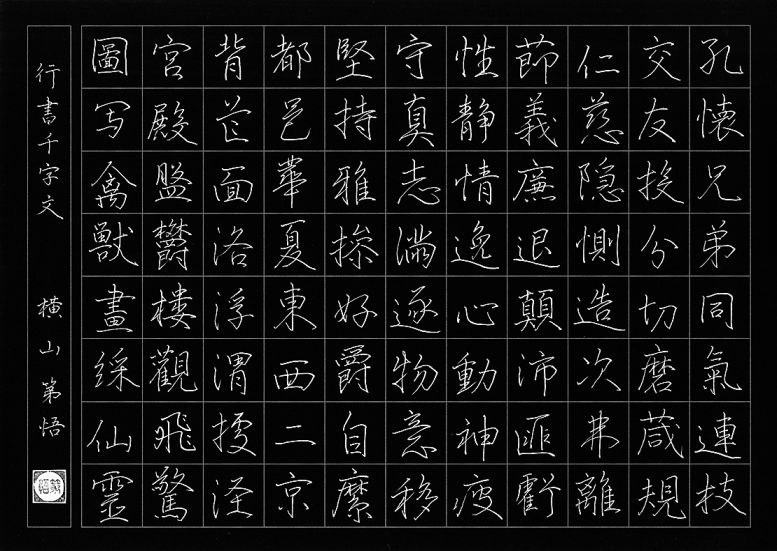 孔懐兄弟同氣連枝
交友投分切磨箴規
仁慈隠惻造次弗離
節義廉退顛沛匪虧
性静情逸心動神疲
守真志満逐物意移
堅持雅操好爵自縻
都邑華夏東西二京
背芒面洛浮渭據涇
宮殿盤欝樓觀飛驚
圖写禽獣畫綵仙靈
行書千字文 横山第悟